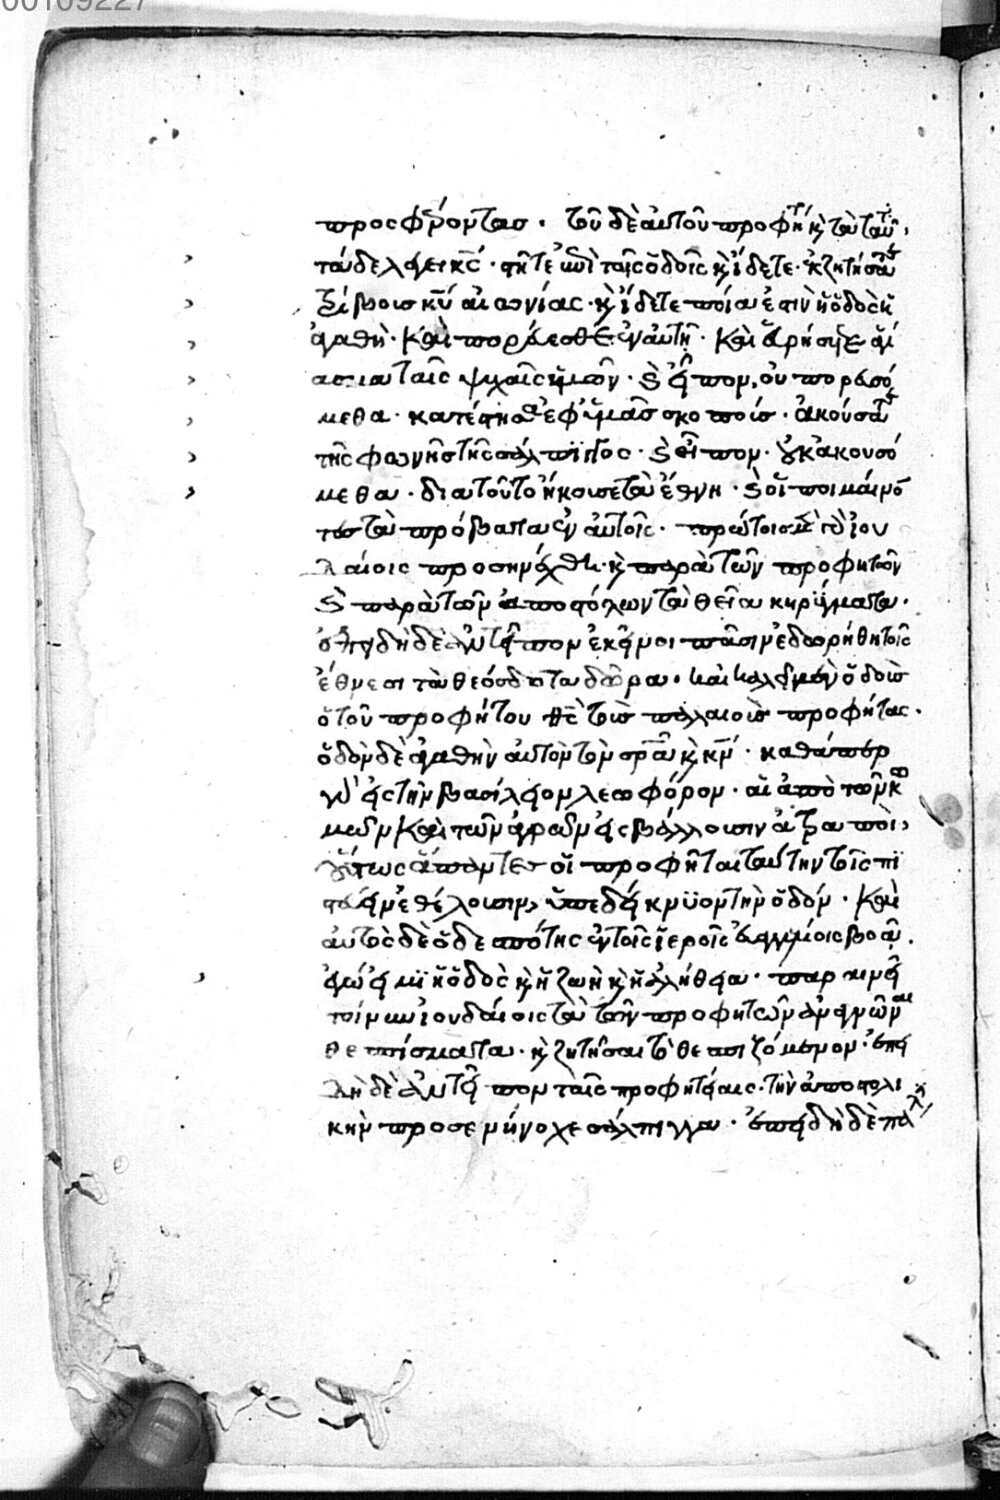 00109227
προσφέροντας · τοῦ δὲ αὐτοῦ προφήτου κ ταῦτα
τάδε λέγει κς · στῆτε ἐπὶ ταῖς ὁδοῖς κ ἴδετε · ἐκζητήσατε
τρίβους κυ αἰωνίας · κ ἴδετε ποία ἐστὶν ἡ ὁδὸς ἡ
ἀγαθὴ · καὶ πορεύεσθε ἐν αὐτῇ · καὶ εὑρήσητε ἁγι
ασμα ταῖς ψυχαῖς ὑμῶν · κ εἶπον, οὐ πορευσό
μεθα · κατέστησα ἐφ ὑμᾶς σκοποὺς · ἀκούσατε
τῆς φωνῆς τῆς σάλπιγγος · κ εἶπον · οὐκ ἀκουσό
μεθα · διατοῦτο ἤκουσε τὰ ἔθνη · κ οἱ ποιμαίνον
τες τὰ πρόβατα ἐν αὐτοῖς · πρώτοις μὲν γὰρ ἰου
δαίοις προσηνέχθη · κ παρὰ τῶν προφητῶν
κ παρὰ τῶν ἀποστόλων τὰ θεῖα κηρύγματα ·
ἐπειδὴ δὲ ἀντεῖπον ἐκεῖνοι πᾶσιν ἐδωρήθη τοῖς
ἔθνεσι τὰ θεόσδοτα δῶρα · καὶ καλεῖ μὲν ὁδοὺς
ὁ τοῦ προφήτου θς τοὺς παλαιοὺς προφήτας ·
ὁδὸν δὲ ἀγαθὴν αὐτὸν τὸν σρα κ κν · καθάπερ
γὰρ εἰς τὴν βασίλειον λεωφόρον · αἱ ἀπὸ τῶν κω
μῶν καὶ τῶν ἀγρῶν εἰσβάλλουσιν ἀτραποὶ,
οὕτως ἅπαντες οἱ προφῆται ταύτην τοῖς πι
στεύειν ἐθέλουσιν, ὑπεδείκνυον τὴν ὁδόν · καὶ
αὐτὸς δὲ ὁ δεσπότης ἐν τοῖς ἱεροῖς εὐαγγελίοις βοᾷ.
ἐγώ εἰμϊ ἡ ὁδὸς κ ἡ ζωὴ κ ἡ ἀλήθεια · παραινεῖ
τοίνυν ἰουδαίοις τὰ τῶν προφητῶν ἀναγνῶναι
θεσπίσματα · κ ζητῆσαι τὸ θεσπιζόμενον · ἐπει
δὴ δὲ ἀντεῖπον ταῖς προφητείαις · τὴν ἀποστολι
κὴν προσενήνοχε σάλπιγγα · ἐπειδὴ δὲ πάλιν